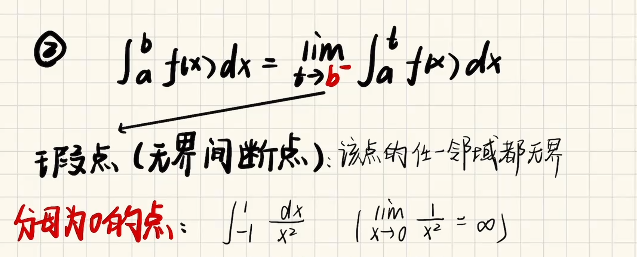 ② ∫_a^b f(x)dx = lim_{t→b⁻} ∫_a^t f(x)dx
瑕点 (无界间断点): 该点的任一邻域都无界
分母为0的点: ∫_{-1}^{1} dx/x² ( lim_{x→0} 1/x² = ∞ )